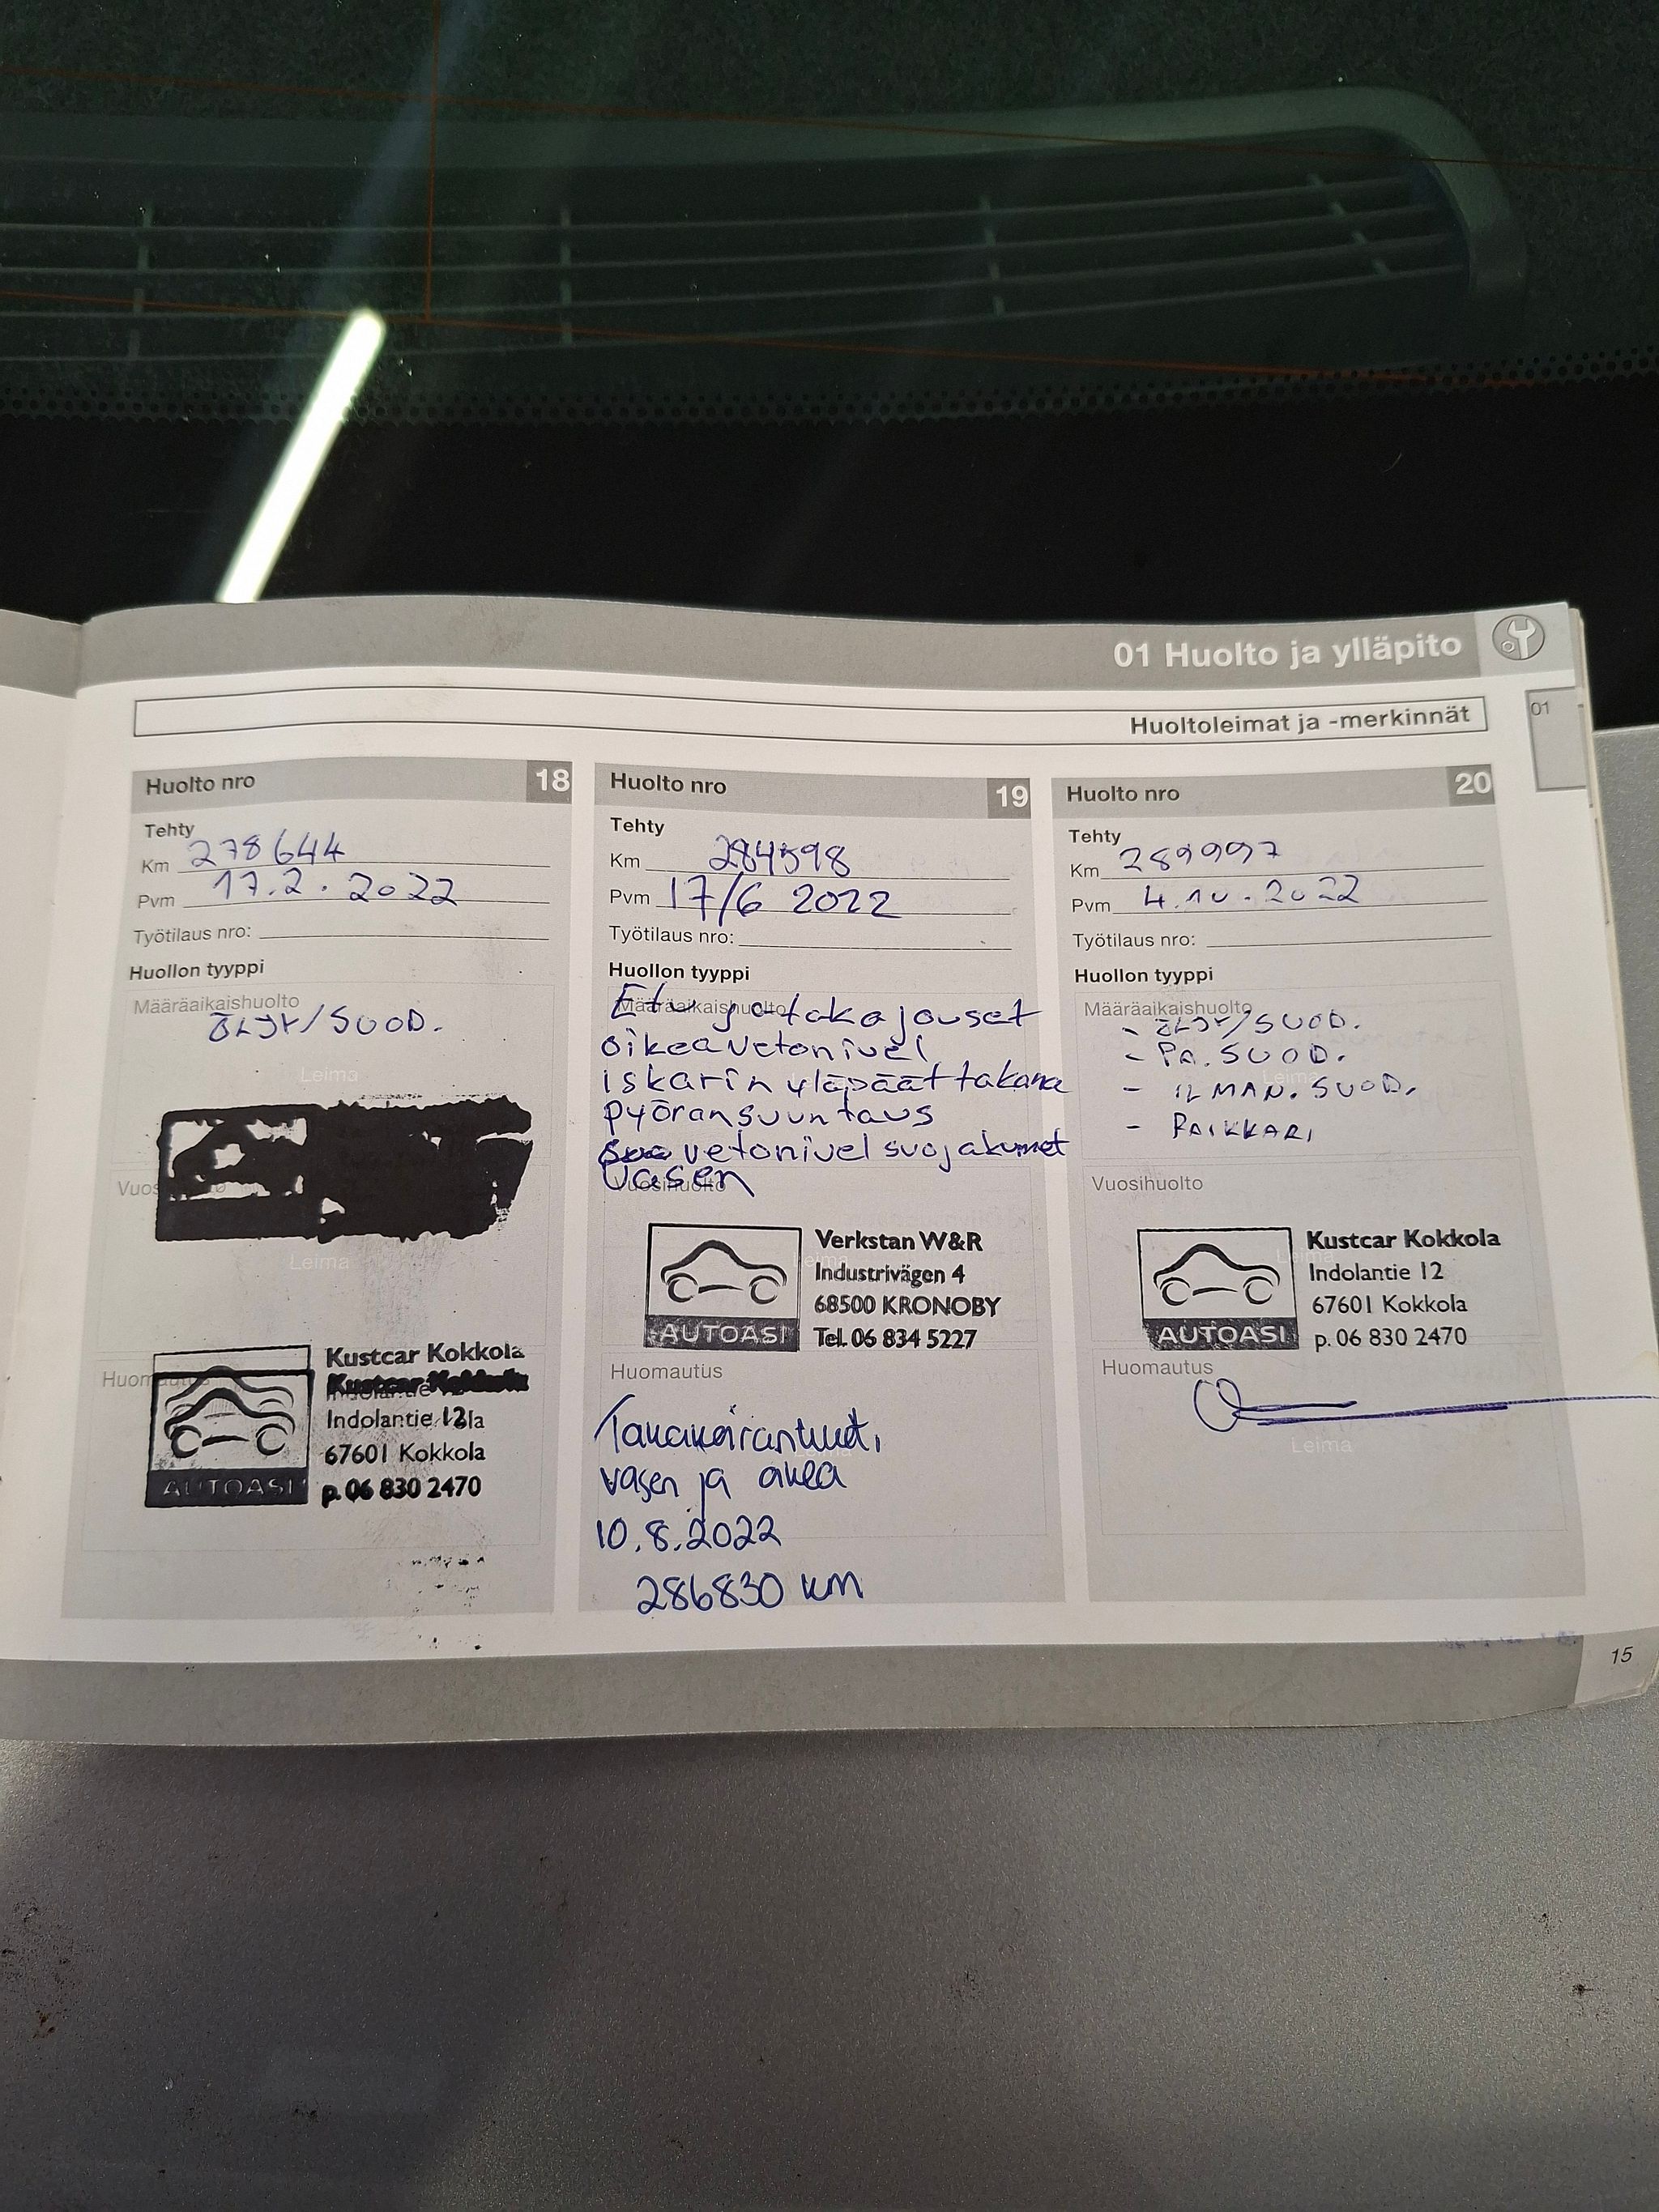 01 Huolto ja ylläpito
Huoltoleimat ja -merkinnät
01
Huolto nro 18
Tehty
Km 278644
Pvm 17.2.2022
Työtilaus nro:
Huollon tyyppi
Määräaikaishuolto
ÖLJY/SUOD.
Leima
Leima
Kustcar Kokkola
Indolantie 12
67601 Kokkola
AUTOASI
p. 06 830 2470
Huolto nro 19
Tehty
Km 284598
Pvm 17/6 2022
Työtilaus nro:
Huollon tyyppi
Määräaikaishuolto
Etu ja taka jouset
oikea vetonivel
iskarin yläpäät takana
pyöransuuntaus
vetonivel suojakumet
Vasen
Vuosihuolto
Verkstan W&R
Industrivägen 4
68500 KRONOBY
AUTOASI
Tel. 06 834 5227
Huomautus
vasen ja oikea
10.8.2022
286830 km
Huolto nro 20
Tehty
Km 289997
Pvm 4.10.2022
Työtilaus nro:
Huollon tyyppi
Määräaikaishuolto
- ÖLJY/SUOD.
- PA. SUOD.
- ILMAN. SUOD.
- RAIKKARI
Vuosihuolto
Kustcar Kokkola
Indolantie 12
67601 Kokkola
AUTOASI
p. 06 830 2470
Huomautus
Leima
15